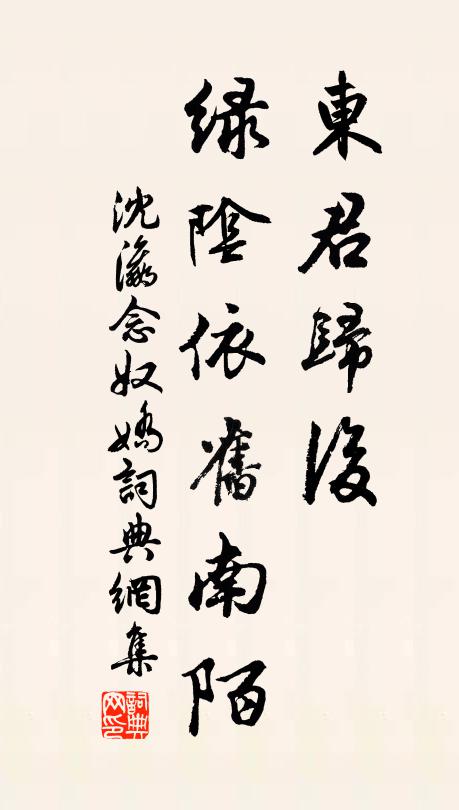 東君歸後
緑陰依舊南陌
沈瀛念奴嬌詞典網集
詞典
网印